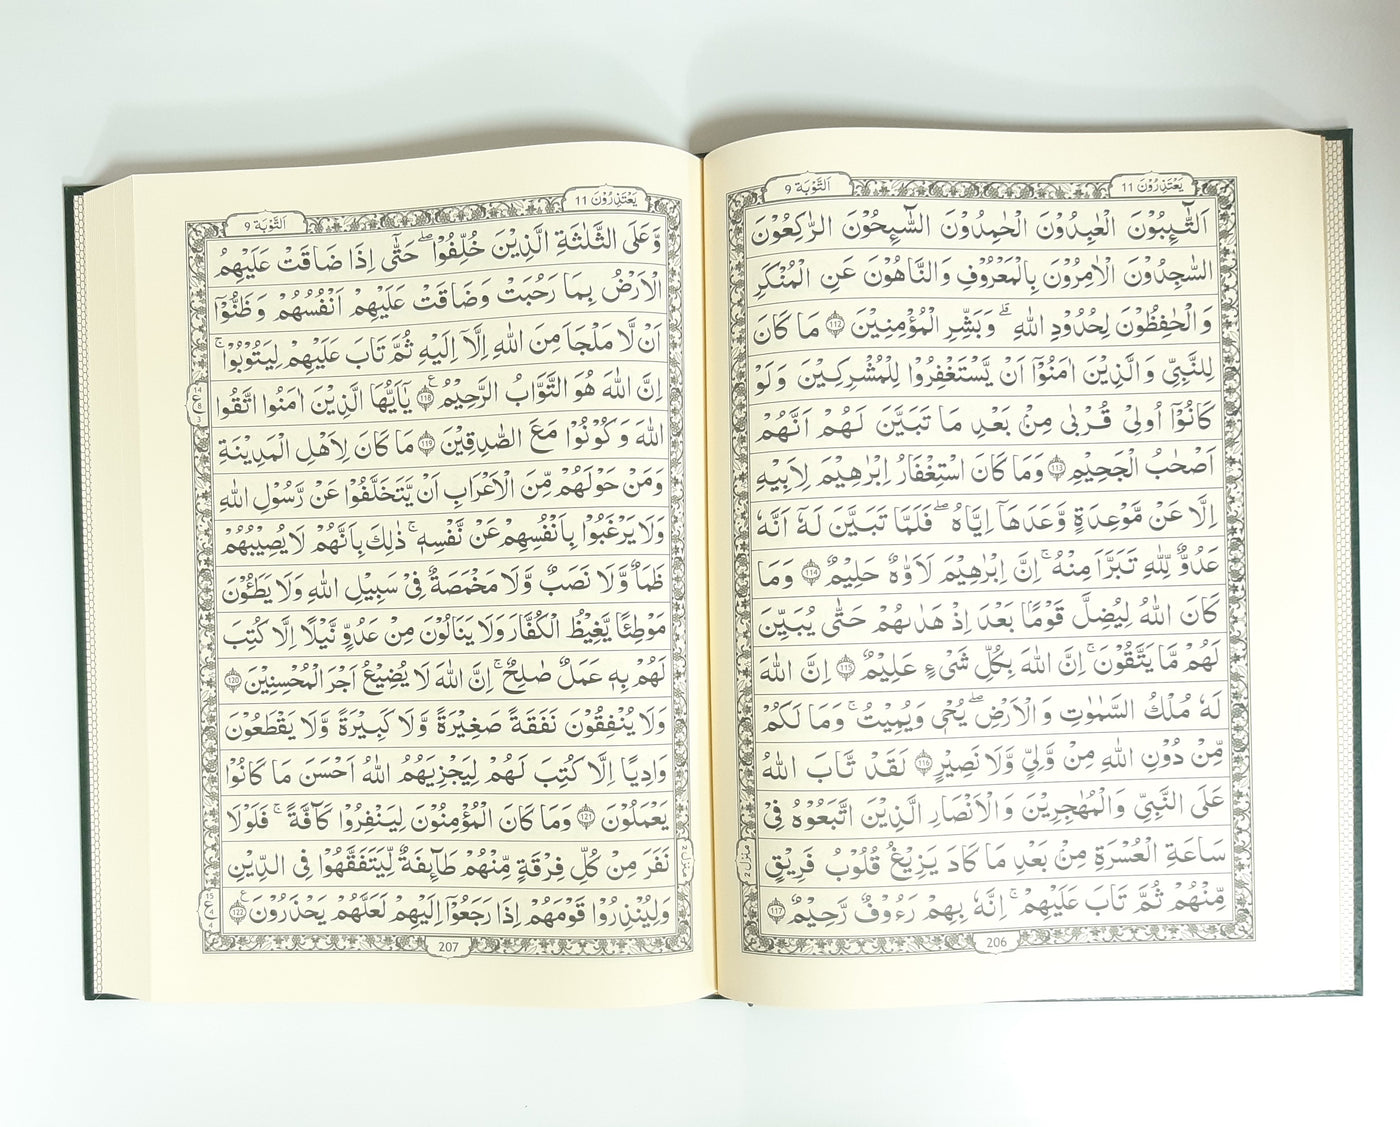 يَعْتَذِرُوْنَ 11
اَلتَّوْبَة 9
اَلتَّآئِبُوْنَ الْعٰبِدُوْنَ الْحٰمِدُوْنَ السَّآئِحُوْنَ الرّٰكِعُوْنَ
السّٰجِدُوْنَ الْاٰمِرُوْنَ بِالْمَعْرُوْفِ وَالنَّاهُوْنَ عَنِ الْمُنْكَرِ
وَالْحٰفِظُوْنَ لِحُدُوْدِ اللّٰهِ ؕ وَبَشِّرِ الْمُؤْمِنِيْنَ ۝112 مَا كَانَ
لِلنَّبِيِّ وَالَّذِيْنَ اٰمَنُوْۤا اَنْ يَّسْتَغْفِرُوْا لِلْمُشْرِكِيْنَ وَلَوْ
كَانُوْۤا اُولِيْ قُرْبٰى مِنْۢ بَعْدِ مَا تَبَيَّنَ لَهُمْ اَنَّهُمْ
اَصْحٰبُ الْجَحِيْمِ ۝113 وَمَا كَانَ اسْتِغْفَارُ اِبْرٰهِيْمَ لِاَبِيْهِ
اِلَّا عَنْ مَّوْعِدَةٍ وَّعَدَهَاۤ اِيَّاهُ ۖ فَلَمَّا تَبَيَّنَ لَهٗۤ اَنَّهٗ
عَدُوٌّ لِّلّٰهِ تَبَرَّاَ مِنْهُ ۚ اِنَّ اِبْرٰهِيْمَ لَاَوَّاهٌ حَلِيْمٌ ۝114 وَمَا
كَانَ اللّٰهُ لِيُضِلَّ قَوْمًاۢ بَعْدَ اِذْ هَدٰىهُمْ حَتّٰى يُبَيِّنَ
لَهُمْ مَّا يَتَّقُوْنَ ۚ اِنَّ اللّٰهَ بِكُلِّ شَيْءٍ عَلِيْمٌ ۝115 اِنَّ اللّٰهَ
لَهٗ مُلْكُ السَّمٰوٰتِ وَالْاَرْضِ ۖ يُحْيٖ وَيُمِيْتُ ۚ وَمَا لَكُمْ
مِّنْ دُوْنِ اللّٰهِ مِنْ وَّلِيٍّ وَّلَا نَصِيْرٍ ۝116 لَقَدْ تَّابَ اللّٰهُ
عَلَى النَّبِيِّ وَالْمُهٰجِرِيْنَ وَالْاَنْصَارِ الَّذِيْنَ اتَّبَعُوْهُ فِيْ
سَاعَةِ الْعُسْرَةِ مِنْۢ بَعْدِ مَا كَادَ يَزِيْغُ قُلُوْبُ فَرِيْقٍ
مِّنْهُمْ ثُمَّ تَابَ عَلَيْهِمْ ۚ اِنَّهٗ بِهِمْ رَءُوْفٌ رَّحِيْمٌ ۝117
منزل 2
206
يَعْتَذِرُوْنَ 11
اَلتَّوْبَة 9
وَّعَلَى الثَّلٰثَةِ الَّذِيْنَ خُلِّفُوْا ۖ حَتّٰۤى اِذَا ضَاقَتْ عَلَيْهِمُ
الْاَرْضُ بِمَا رَحُبَتْ وَضَاقَتْ عَلَيْهِمْ اَنْفُسُهُمْ وَظَنُّوْۤا
اَنْ لَّا مَلْجَاَ مِنَ اللّٰهِ اِلَّاۤ اِلَيْهِ ثُمَّ تَابَ عَلَيْهِمْ لِيَتُوْبُوْا ۚ
اِنَّ اللّٰهَ هُوَ التَّوَّابُ الرَّحِيْمُ ۝118 يٰۤاَيُّهَا الَّذِيْنَ اٰمَنُوا اتَّقُوا
اللّٰهَ وَكُوْنُوْا مَعَ الصّٰدِقِيْنَ ۝119 مَا كَانَ لِاَهْلِ الْمَدِيْنَةِ
وَمَنْ حَوْلَهُمْ مِّنَ الْاَعْرَابِ اَنْ يَّتَخَلَّفُوْا عَنْ رَّسُوْلِ اللّٰهِ
وَلَا يَرْغَبُوْا بِاَنْفُسِهِمْ عَنْ نَّفْسِهٖ ۚ ذٰلِكَ بِاَنَّهُمْ لَا يُصِيْبُهُمْ
ظَمَاٌ وَّلَا نَصَبٌ وَّلَا مَخْمَصَةٌ فِيْ سَبِيْلِ اللّٰهِ وَلَا يَطَـُٔوْنَ
مَوْطِئًا يَّغِيْظُ الْكُفَّارَ وَلَا يَنَالُوْنَ مِنْ عَدُوٍّ نَّيْلًا اِلَّا كُتِبَ
لَهُمْ بِهٖ عَمَلٌ صَالِحٌ ۚ اِنَّ اللّٰهَ لَا يُضِيْعُ اَجْرَ الْمُحْسِنِيْنَ ۝120
وَلَا يُنْفِقُوْنَ نَفَقَةً صَغِيْرَةً وَّلَا كَبِيْرَةً وَّلَا يَقْطَعُوْنَ
وَادِيًا اِلَّا كُتِبَ لَهُمْ لِيَجْزِيَهُمُ اللّٰهُ اَحْسَنَ مَا كَانُوْا
يَعْمَلُوْنَ ۝121 وَمَا كَانَ الْمُؤْمِنُوْنَ لِيَنْفِرُوْا كَآفَّةً ۚ فَلَوْلَا
نَفَرَ مِنْ كُلِّ فِرْقَةٍ مِّنْهُمْ طَآئِفَةٌ لِّيَتَفَقَّهُوْا فِي الدِّيْنِ
وَلِيُنْذِرُوْا قَوْمَهُمْ اِذَا رَجَعُوْۤا اِلَيْهِمْ لَعَلَّهُمْ يَحْذَرُوْنَ ۝122
منزل 2
207